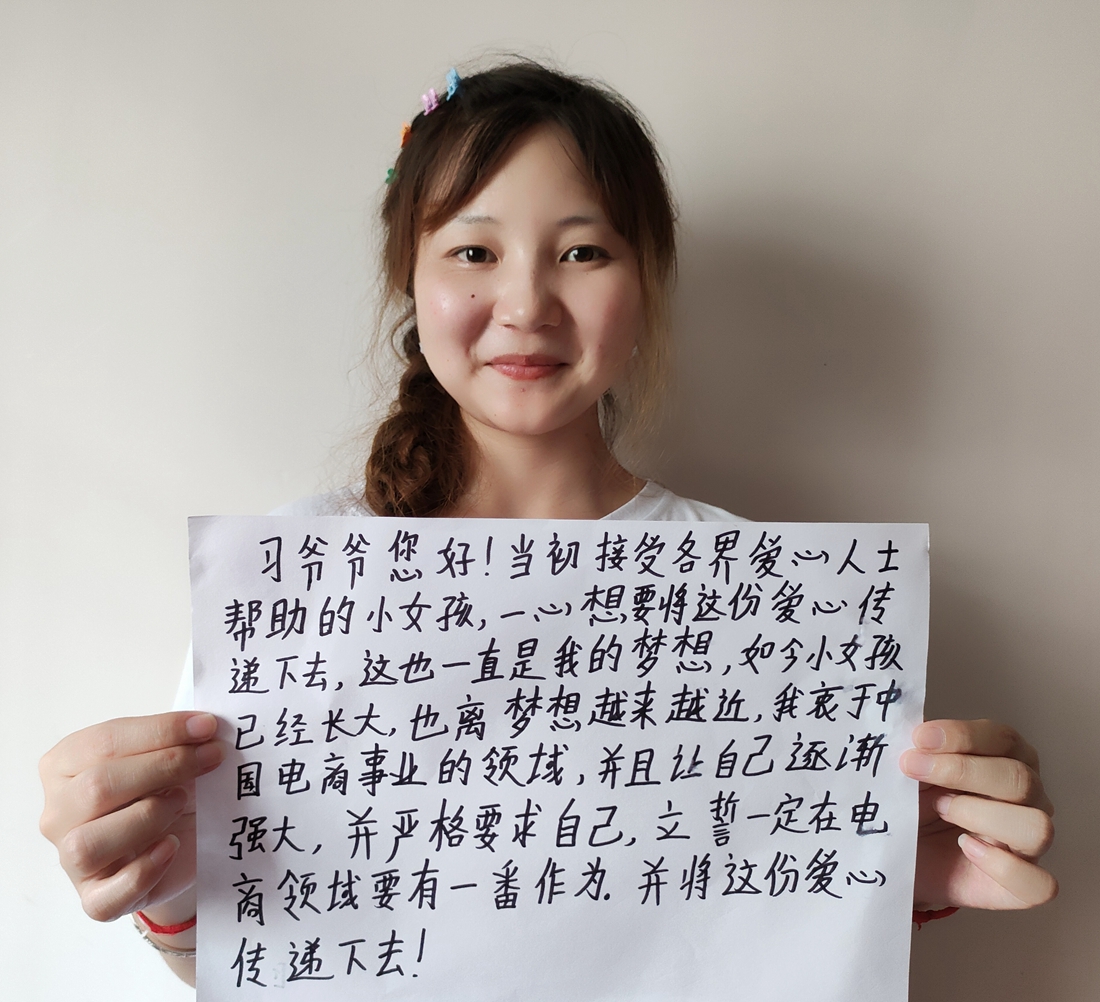 习爷爷您好!当初接受各界爱心人士
帮助的小女孩,一心想要将这份爱心传
递下去,这也一直是我的梦想,如今小女孩
已经长大,也离梦想越来越近,我衷于中
国电商事业的领域,并且让自己逐渐
强大,并严格要求自己,立誓一定在电
商领域要有一番作为.并将这份爱心
传递下去!